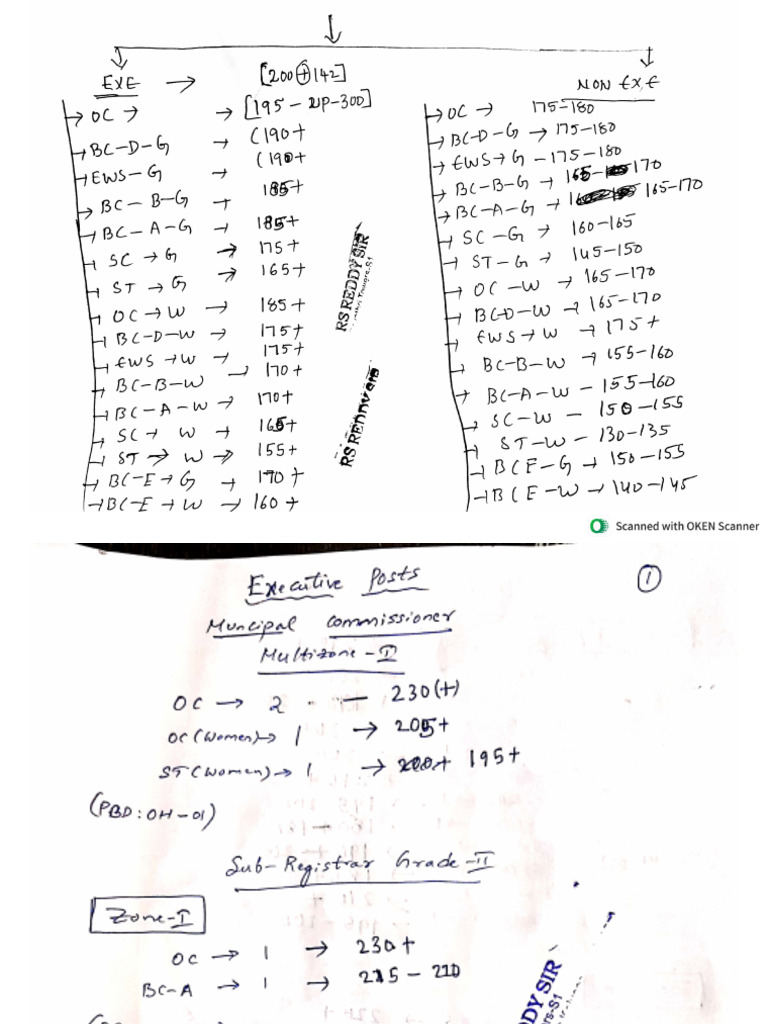 EXE → [200+142]
→ OC → → [195 - UP-300]
→ BC-D-G → (190+
→ EWS-G → (190+
→ BC-B-G → 185+
→ BC-A-G → 185+
→ SC → G → 175+
→ ST → G → 165+
→ OC → W → 185+
→ BC-D-W → 175+
→ EWS → W → 175+
→ BC-B-W → 170+
→ BC-A-W → 170+
→ SC → W → 165+
→ ST → W → 155+
→ BC-E → G → 170+
→ BC-E → W → 160+
RS REDDY SIR
RS REDDY SIR
NON EXE
→ OC → 175-180
→ BC-D-G → 175-180
→ EWS → G - 175-180
→ BC-B-G → 165-170
→ BC-A-G → 165-170
→ SC-G → 160-165
→ ST-G → 145-150
→ OC-W → 165-170
→ BC-D-W → 165-170
→ EWS → W → 175+
→ BC-B-W → 155-160
→ BC-A-W - 155-160
→ SC-W - 150-155
→ ST-W - 130-135
→ BCE-G → 150-155
→ BCE-W → 140-145
Scanned with OKEN Scanner
Executive Posts
1
Muncipal Commissioner
Multizone-I
OC → 2 - 230(+)
OC (Women) → 1 → 205+
ST (Women) → 1 → 195+
(PBD: OH-01)
Sub-Registrar Grade-II
Zone-I
OC → 1 → 230+
BC-A → 1 → 215-210
DY SIR